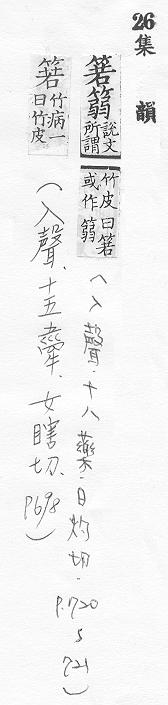 26 集韻
箬篛 說文
所謂
竹皮曰箬
或作篛
(入聲.十八藥.日灼切.P.720 5 721)
箬 竹病一
曰竹皮
(入聲.十五舝.女瞎切.P698)